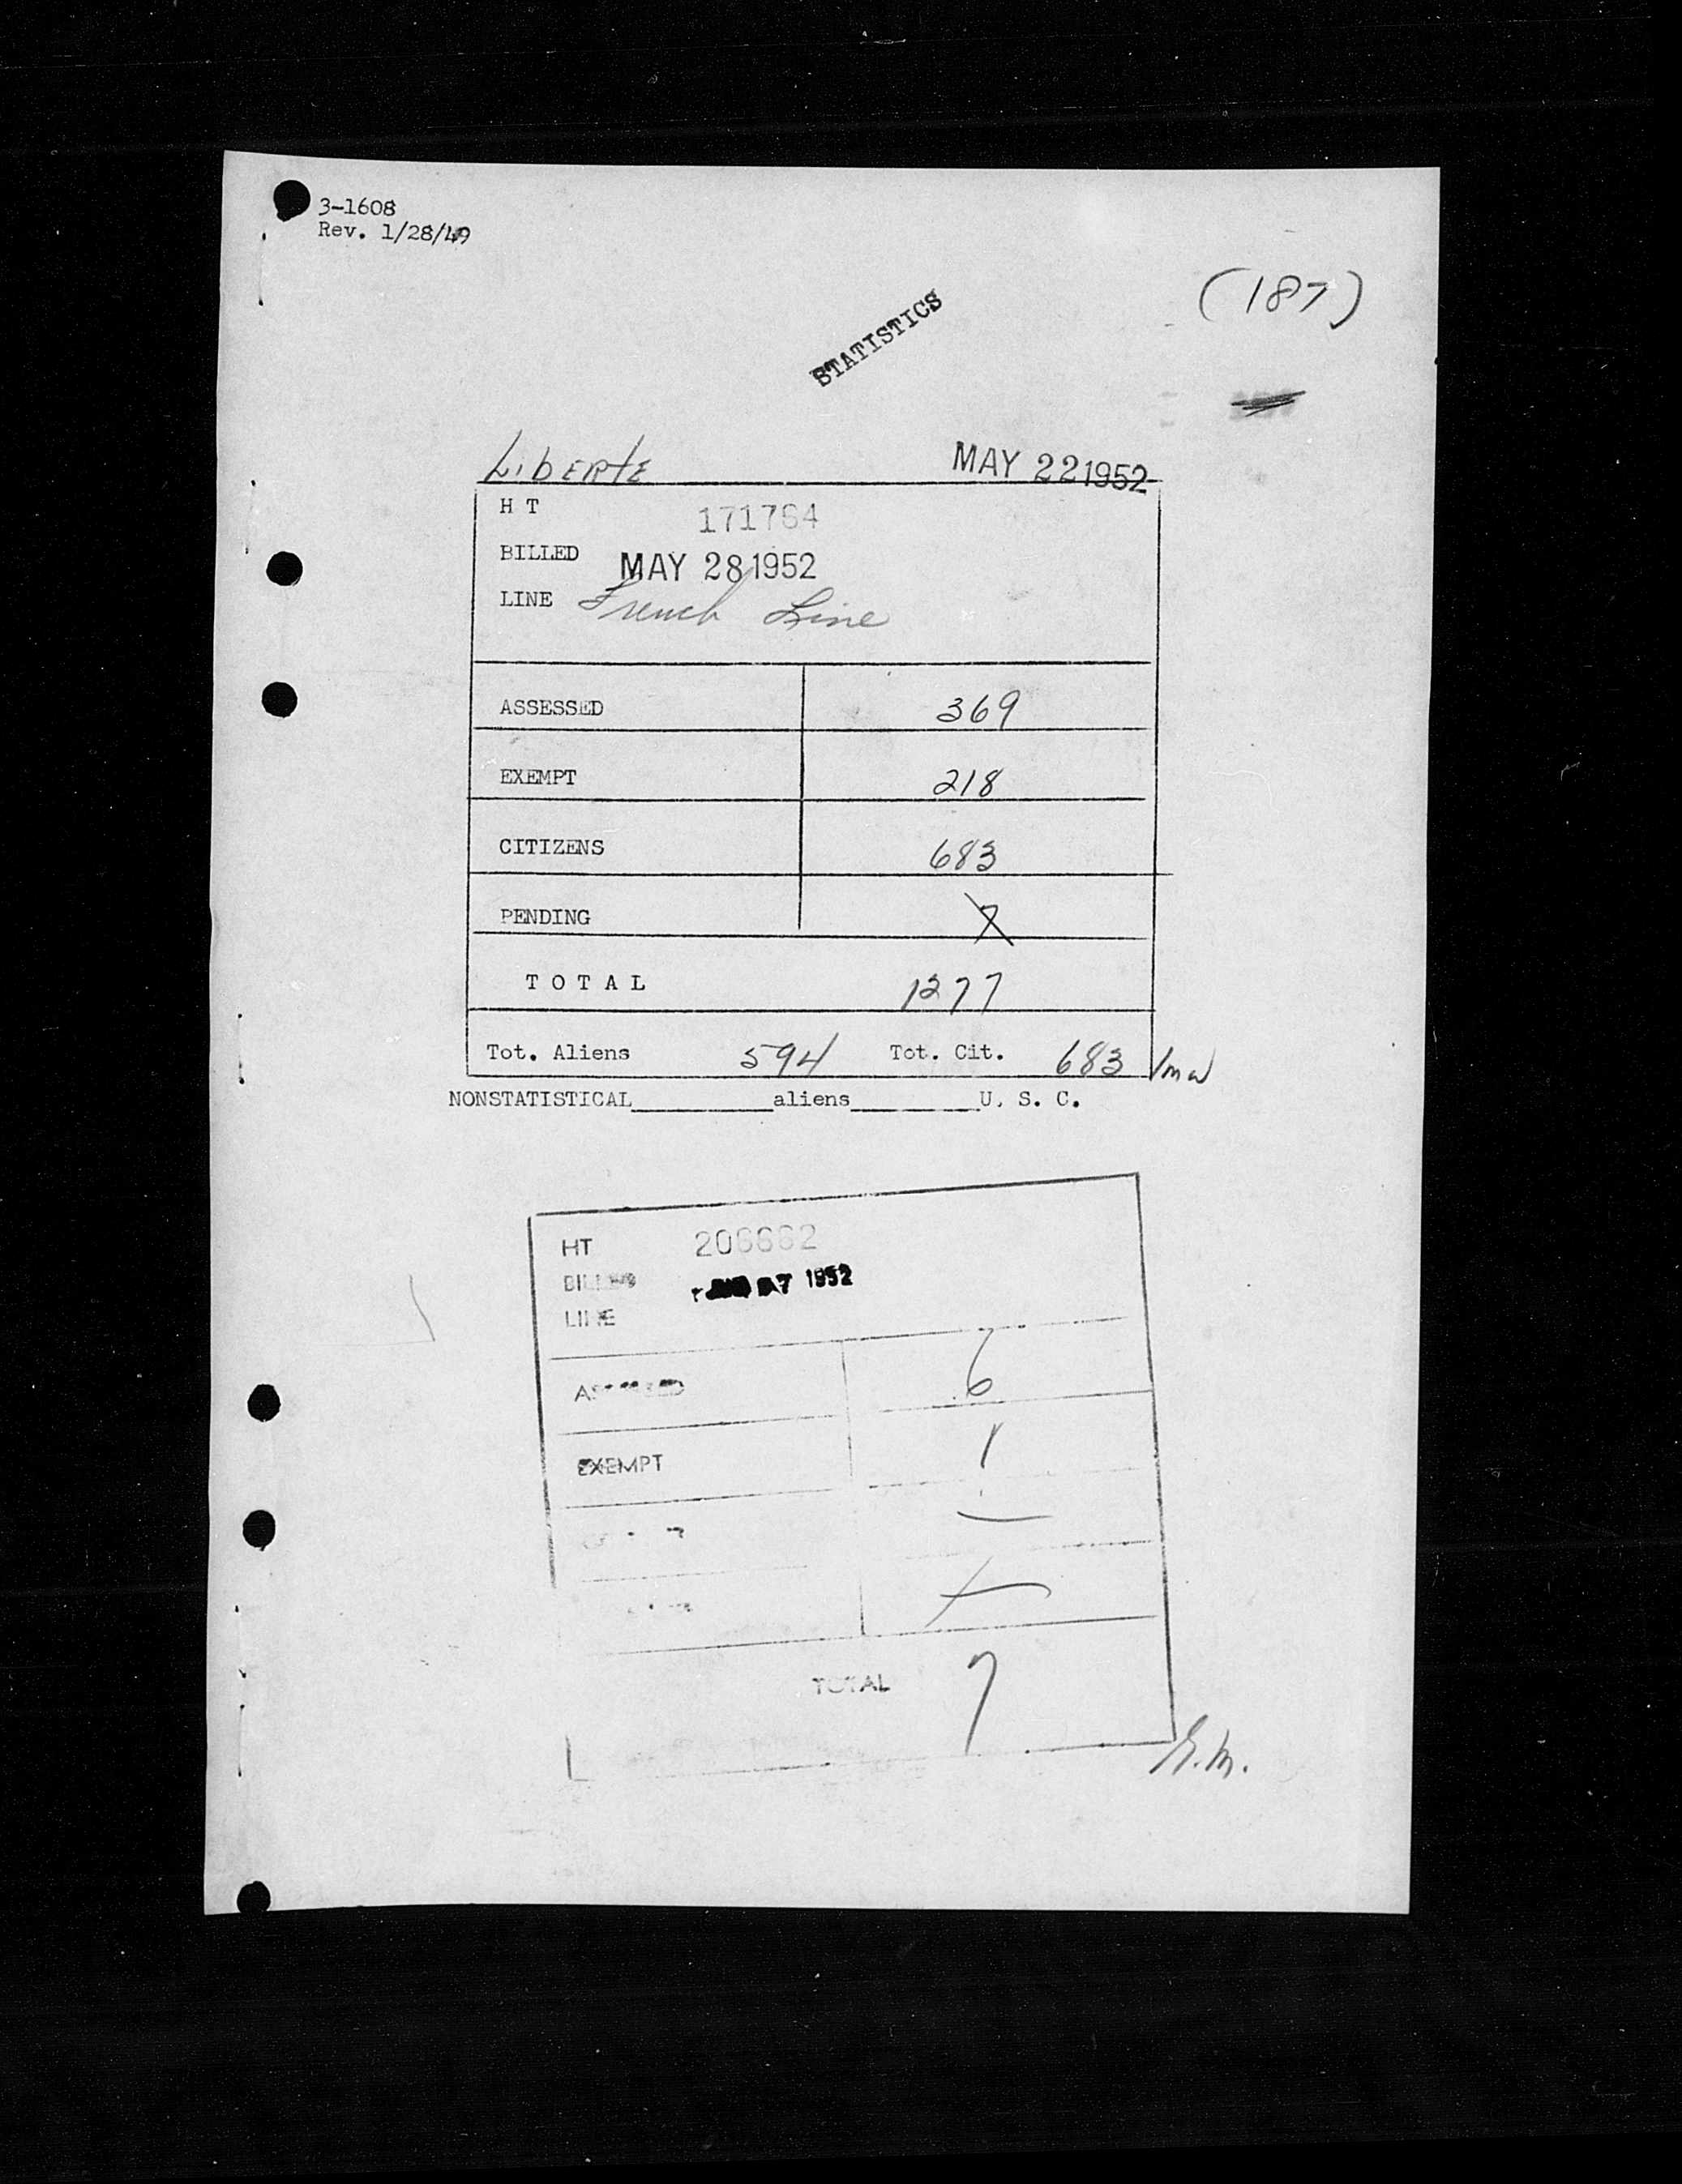 3-1608
Rev. 1/28/49
(187)
STATISTICS
Liberte MAY 22 1952
H T 171764
BILLED MAY 28 1952
LINE French Line
ASSESSED 369
EXEMPT 218
CITIZENS 683
PENDING 7
T O T A L 1277
Tot. Aliens 594 Tot. Cit. 683 /mw
NONSTATISTICAL__________aliens__________U. S. C.
HT 206662
BILLED 1952
LINE
ASSESSED 6
EXEMPT 1
TOTAL 7